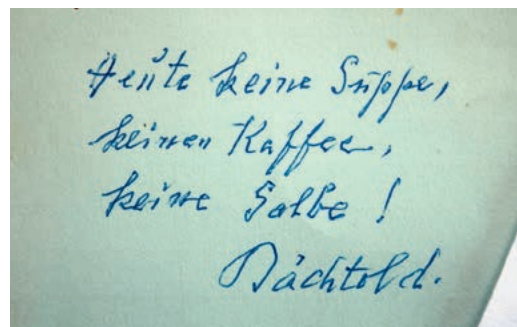 Heute keine Suppe,
keinen Kaffee,
keine Salbe !
Bächtold.